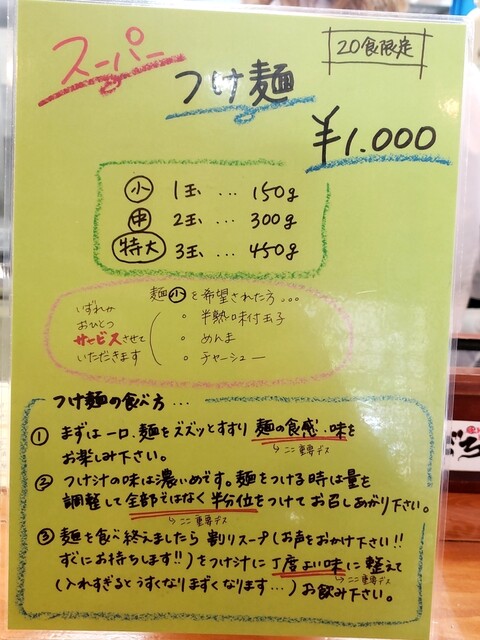 スーパー
つけ麺
20食限定
¥1.000
小 1玉 … 150g
中 2玉 … 300g
特大 3玉 … 450g
麺小を希望された方…
いずれか
おひとつ
サービスさせて
いただきます
。半熟味付玉子
。めんま
。チャーシュー
つけ麺の食べ方…
① まずは一口、麺をズズッとすすり麺の食感、味を
ここ重要デス
お楽しみ下さい。
② つけ汁の味は濃いめです。麺をつける時は量を
調整して全部ではなく半分位をつけてお召しあがり下さい。
ここ重要デス
③ 麺を食べ終えましたら割りスープ(お声をおかけ下さい!!
すぐにお持ちします!!)をつけ汁に丁度よい味に整えて
ここ重要デス
(入れすぎるとうすくなりまずくなります…)お飲み下さい。